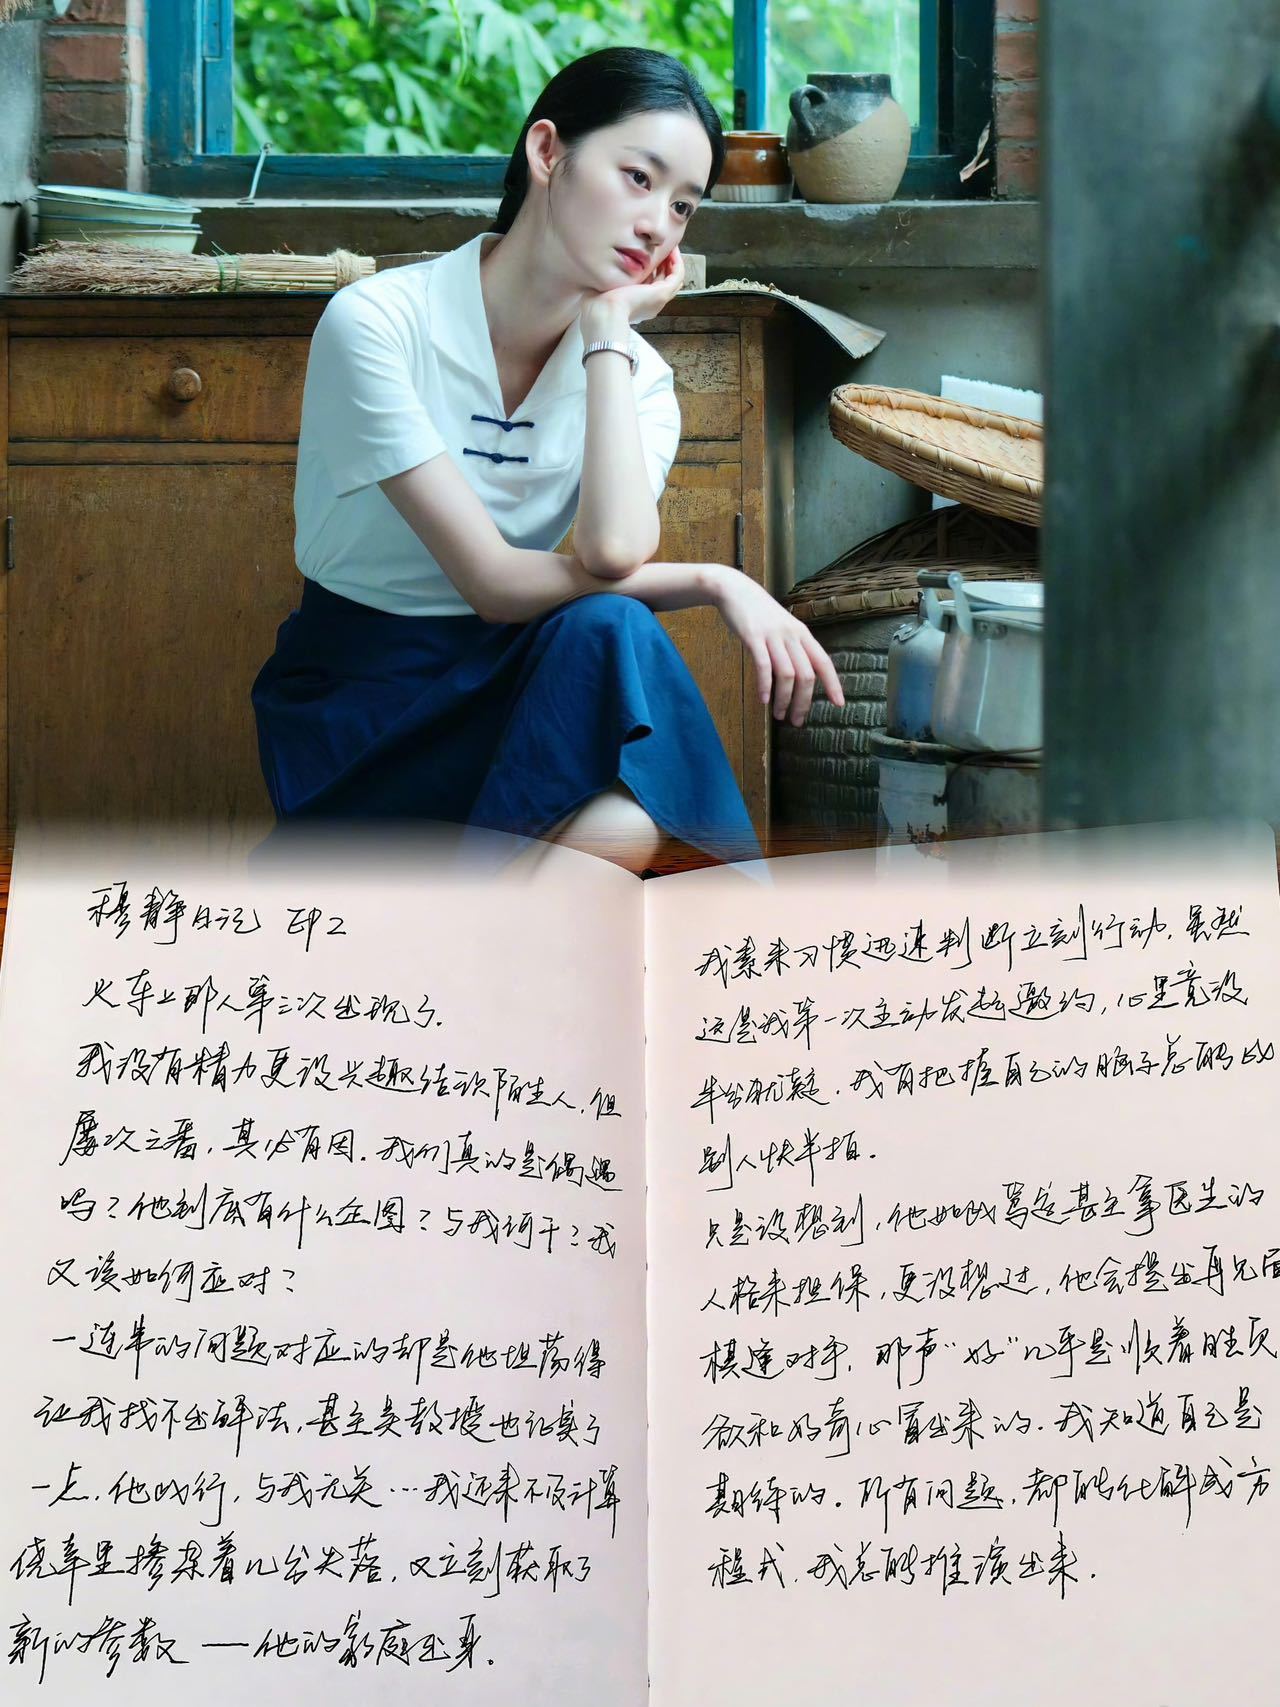 穆静日记 EP2
火车上那人第三次出现了.
我没有精力更没兴趣结识陌生人,但
屡次三番,其必有因.我们真的是偶遇
吗?他到底有什么企图?与我何干?我
又该如何应对?
一连串的问题对应的却是他坦荡得
让我找不出解法,甚至吴教授也证实了
一点.他此行,与我无关…我还来不及计算
侥幸里掺杂着几分失落,又立刻获取了
新的参数——他的家庭出身.
我素来习惯迅速判断立刻行动.虽然
这是我第一次主动发起邀约,心里竟没
半分犹疑.我有把握自己的脑子总能比
别人快半拍.
只是没想到,他如此笃定甚至拿医生的
人格来担保,更没想过,他会提出再见面
棋逢对手.那声“好”几乎是顺着胜负
欲和好奇心冒出来的.我知道自己是
期待的.所有问题,都能化解成方
程式.我总能推演出来.